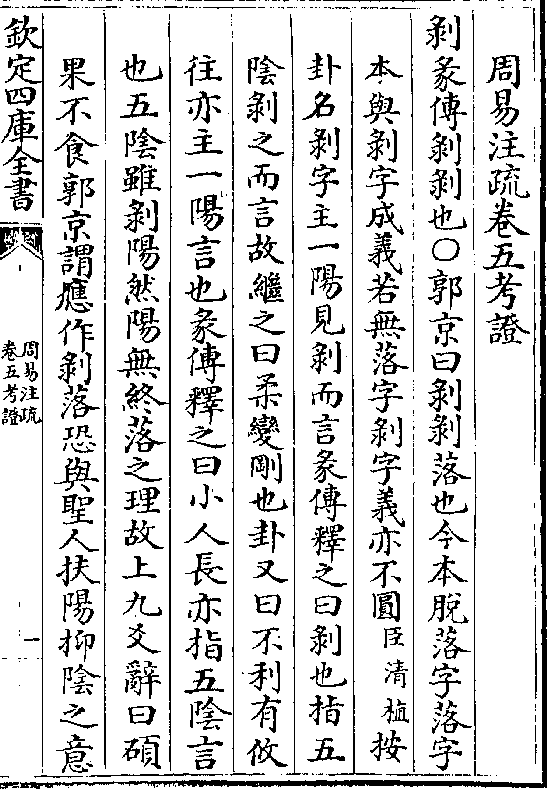 周易注疏卷五考證
剥彖傳剥剥也○郭京曰剥剥落也今本脫落字落字
本與剥字成義若無落字剥字義亦不圓臣清植按
卦名剥字主一陽見剥而言彖傳釋之曰剥也指五
陰剥之而言故繼之曰柔變剛也卦又曰不利有攸
往亦主一陽言也彖傳釋之曰小人長亦指五陰言
也五陰雖剥陽然陽無終落之理故上九爻辭曰碩
果不食郭京謂應作剥落恐與聖人扶陽抑陰之意
欽定四庫全書
周易注疏
卷五考證
一